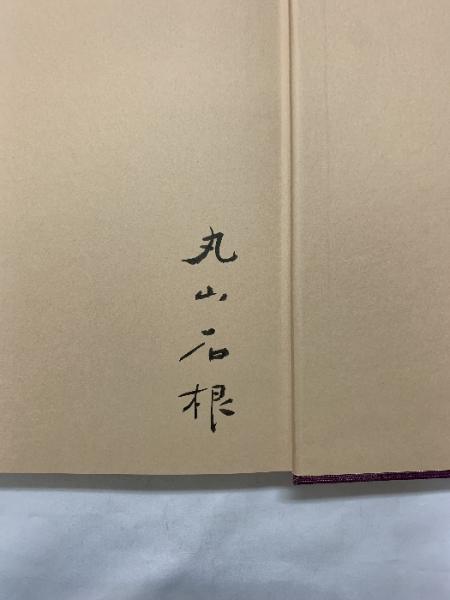 丸山石根